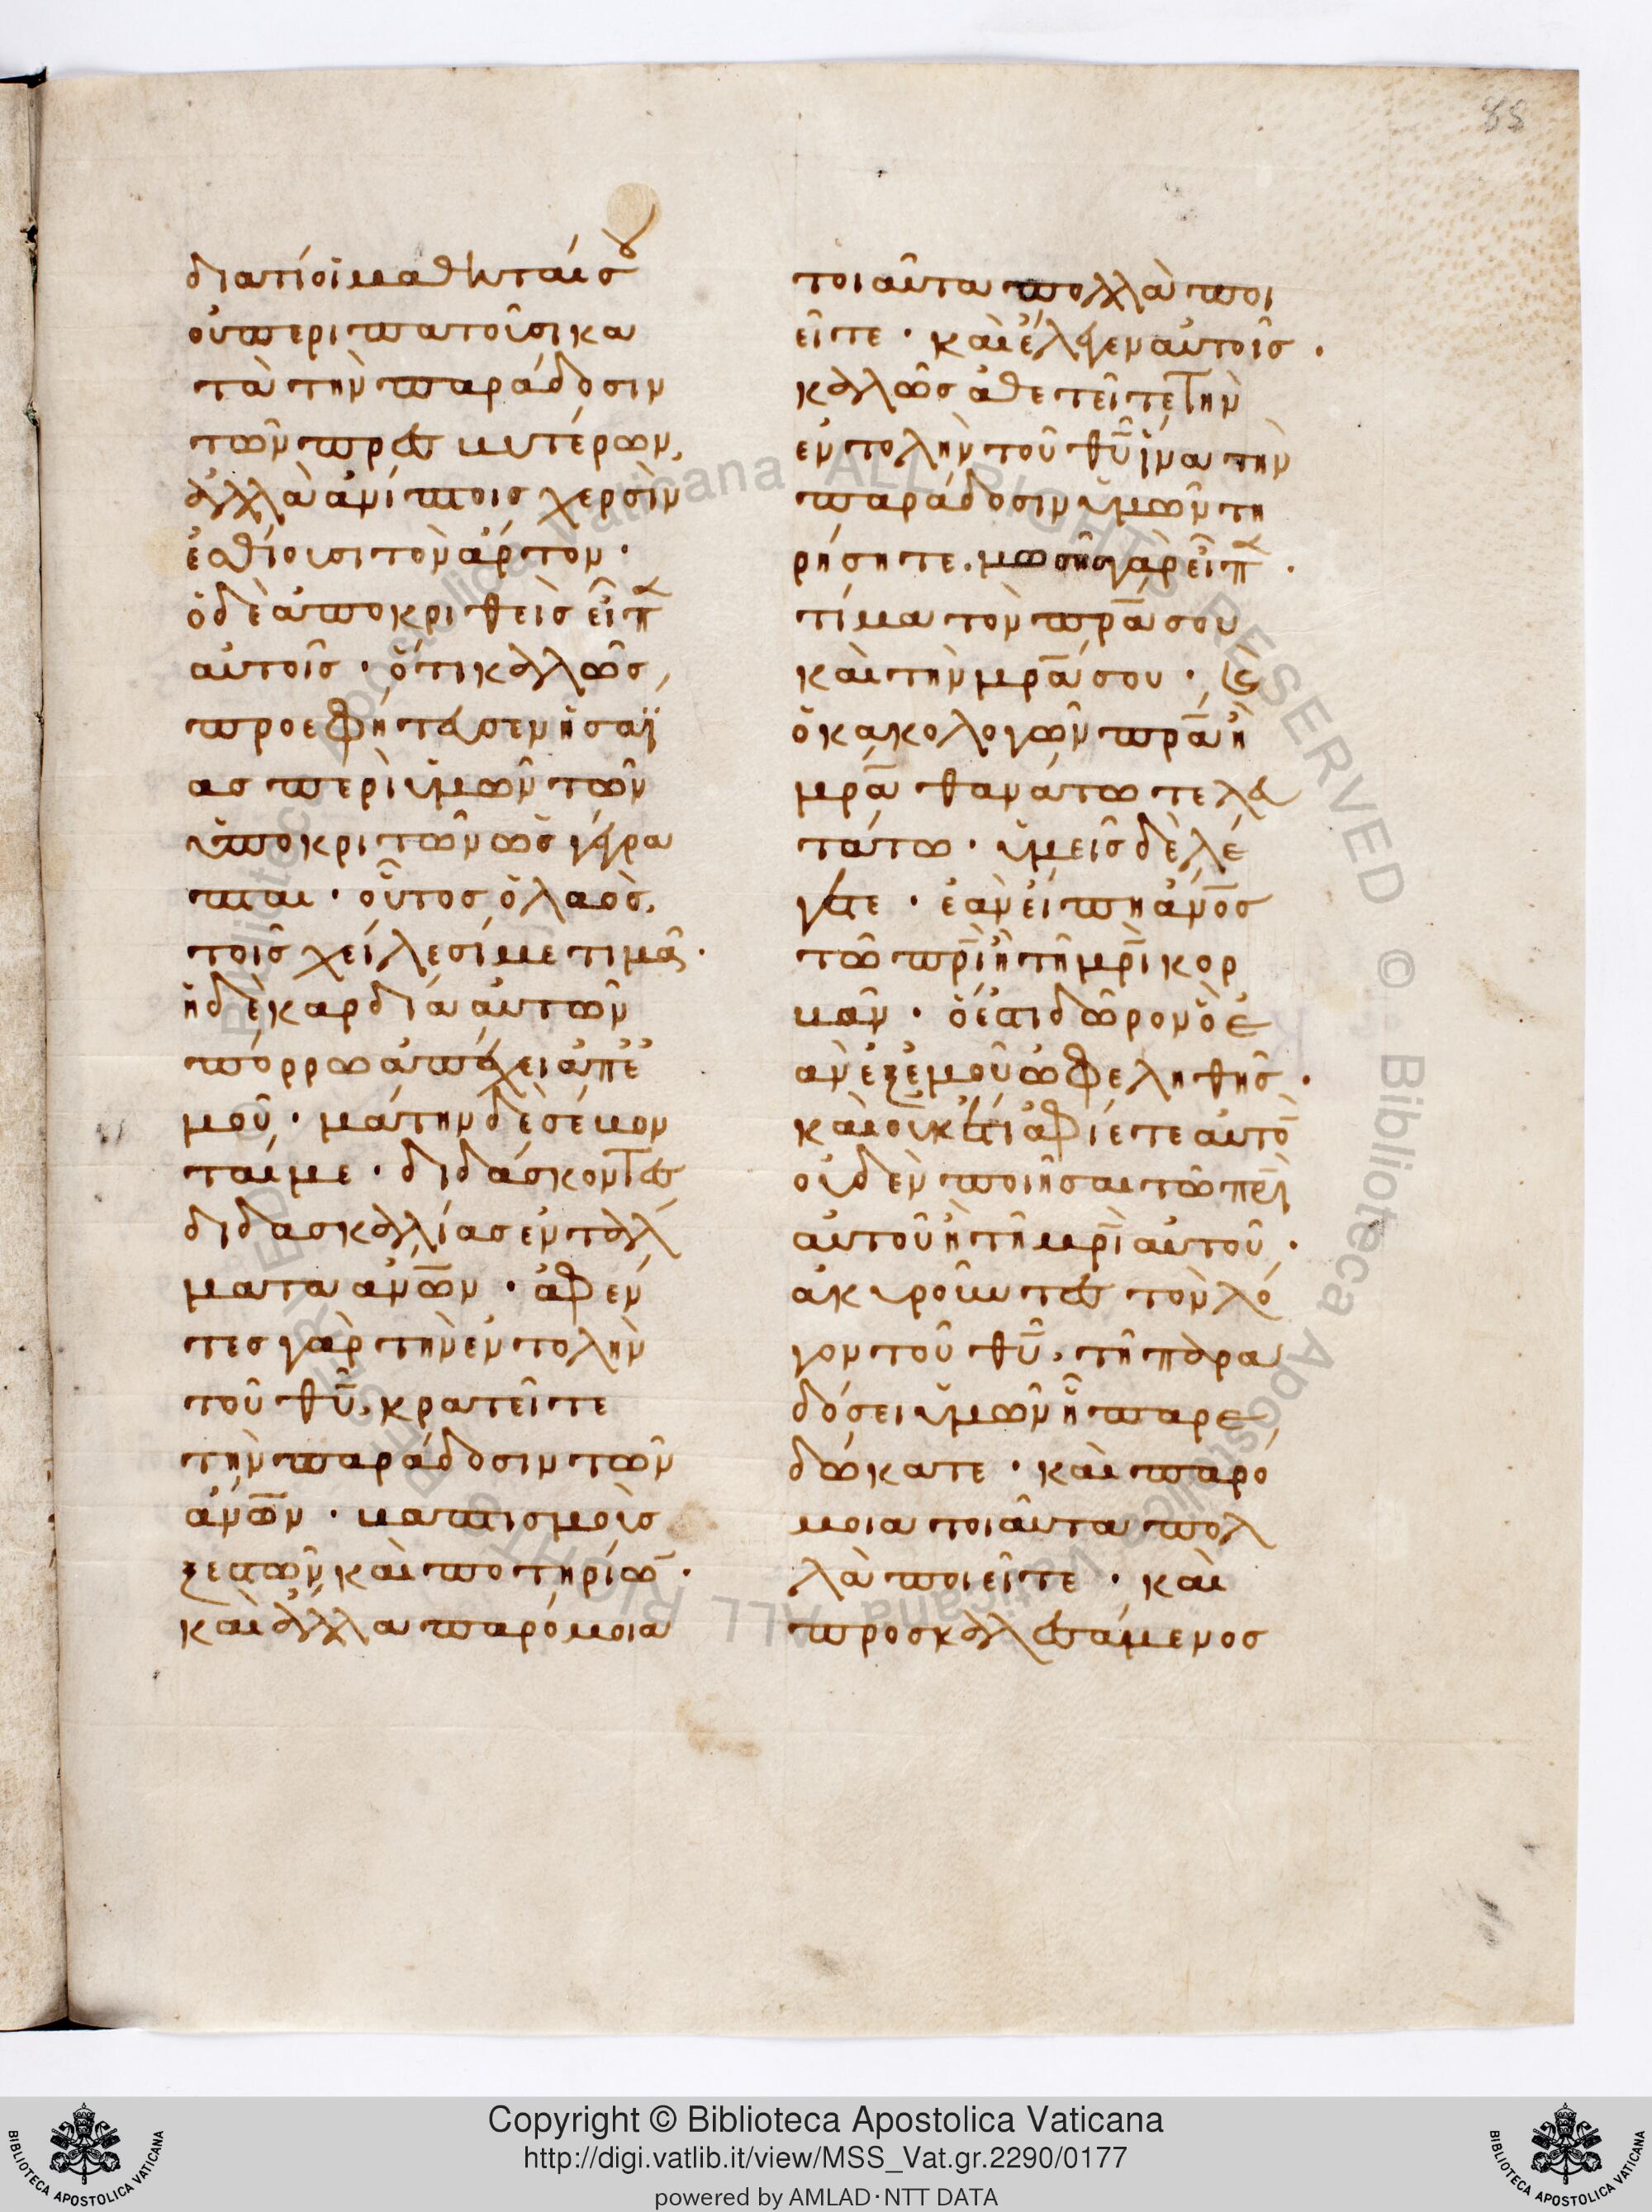 88
διατί οἱ μαθηταί σου
οὐ περιπατοῦσι κα
τὰ τὴν παράδοσιν
τῶν πρεσβυτέρων,
ἀλλὰ ἀνίπτοις χερσὶν
ἐσθίουσι τὸν ἄρτον·
ὁ δὲ ἀποκριθεὶς εἶπ
αὐτοῖς· ὅτι καλῶς
προεφήτευσεν ἡσαΐ
ας περὶ ὑμῶν τῶν
ὑποκριτῶν ὡς γέγρα
πται· οὗτος ὁ λαὸς,
τοῖς χείλεσί με τιμᾶ·
ἡ δὲ καρδία αὐτῶν
πόρρω ἀπέχει ἀπ' ἐ
μοῦ· μάτην δὲ σέβον
ταί με· διδάσκοντες
διδασκαλίας ἐντάλ
ματα ἀν̅ω̅ν· ἀφέν
τες γὰρ τὴν ἐντολὴν
τοῦ θ̅υ̅, κρατεῖτε
τὴν παράδοσιν τῶν
ἀν̅ω̅ν· βαπτισμοὺς
ξεστῶν καὶ ποτηρίω̅·
καὶ ἄλλα παρόμοια
τοιαῦτα πολλὰ ποι
εῖτε· καὶ ἔλεγεν αὐτοῖς·
καλῶς ἀθετεῖτε τὴν
ἐντολὴν τοῦ θ̅υ̅ ἵνα τὴν
παράδοσιν ὑμῶν τη
ρήσητε. μωσῆς γὰρ εἶπ·
τίμα τὸν πρ̅α̅ σου
καὶ τὴν μρ̅α̅ σου· ϗ
ὁ κακολογῶν πρ̅α̅ ἢ
μρ̅α̅ θανάτω τελευ
τάτω· ὑμεῖς δὲ λέ
γετε· ἐὰν εἴπη ἄν̅ο̅ς
τῶ πρ̅ι̅ ἢ τῆ μρ̅ι̅ κορ
βᾶν· ὅ ἐστι δῶρον ὃ ἐ
ὰν ἐξ ἐμοῦ ὠφεληθῆς·
καὶ οὐκέτι ἀφίετε αὐτὸ̅
οὐδὲν ποιῆσαι τῶ π̅ρ̅ι̅
αὐτοῦ ἢ τῆ μρ̅ι̅ αὐτοῦ·
ἀκυροῦντες τὸν λό
γον τοῦ θ̅υ̅, τῆ παρα
δόσει ὑμῶν ἧ παρε
δώκατε· καὶ παρό
μοια τοιαῦτα πολ
λὰ ποιεῖτε· καὶ
προσκαλεσάμενος
Copyright © Biblioteca Apostolica Vaticana
http://digi.vatlib.it/view/MSS_Vat.gr.2290/0177
powered by AMLAD·NTT DATA
BIBLIOTECA APOSTOLICA VATICANA
BIBLIOTECA APOSTOLICA VATICANA